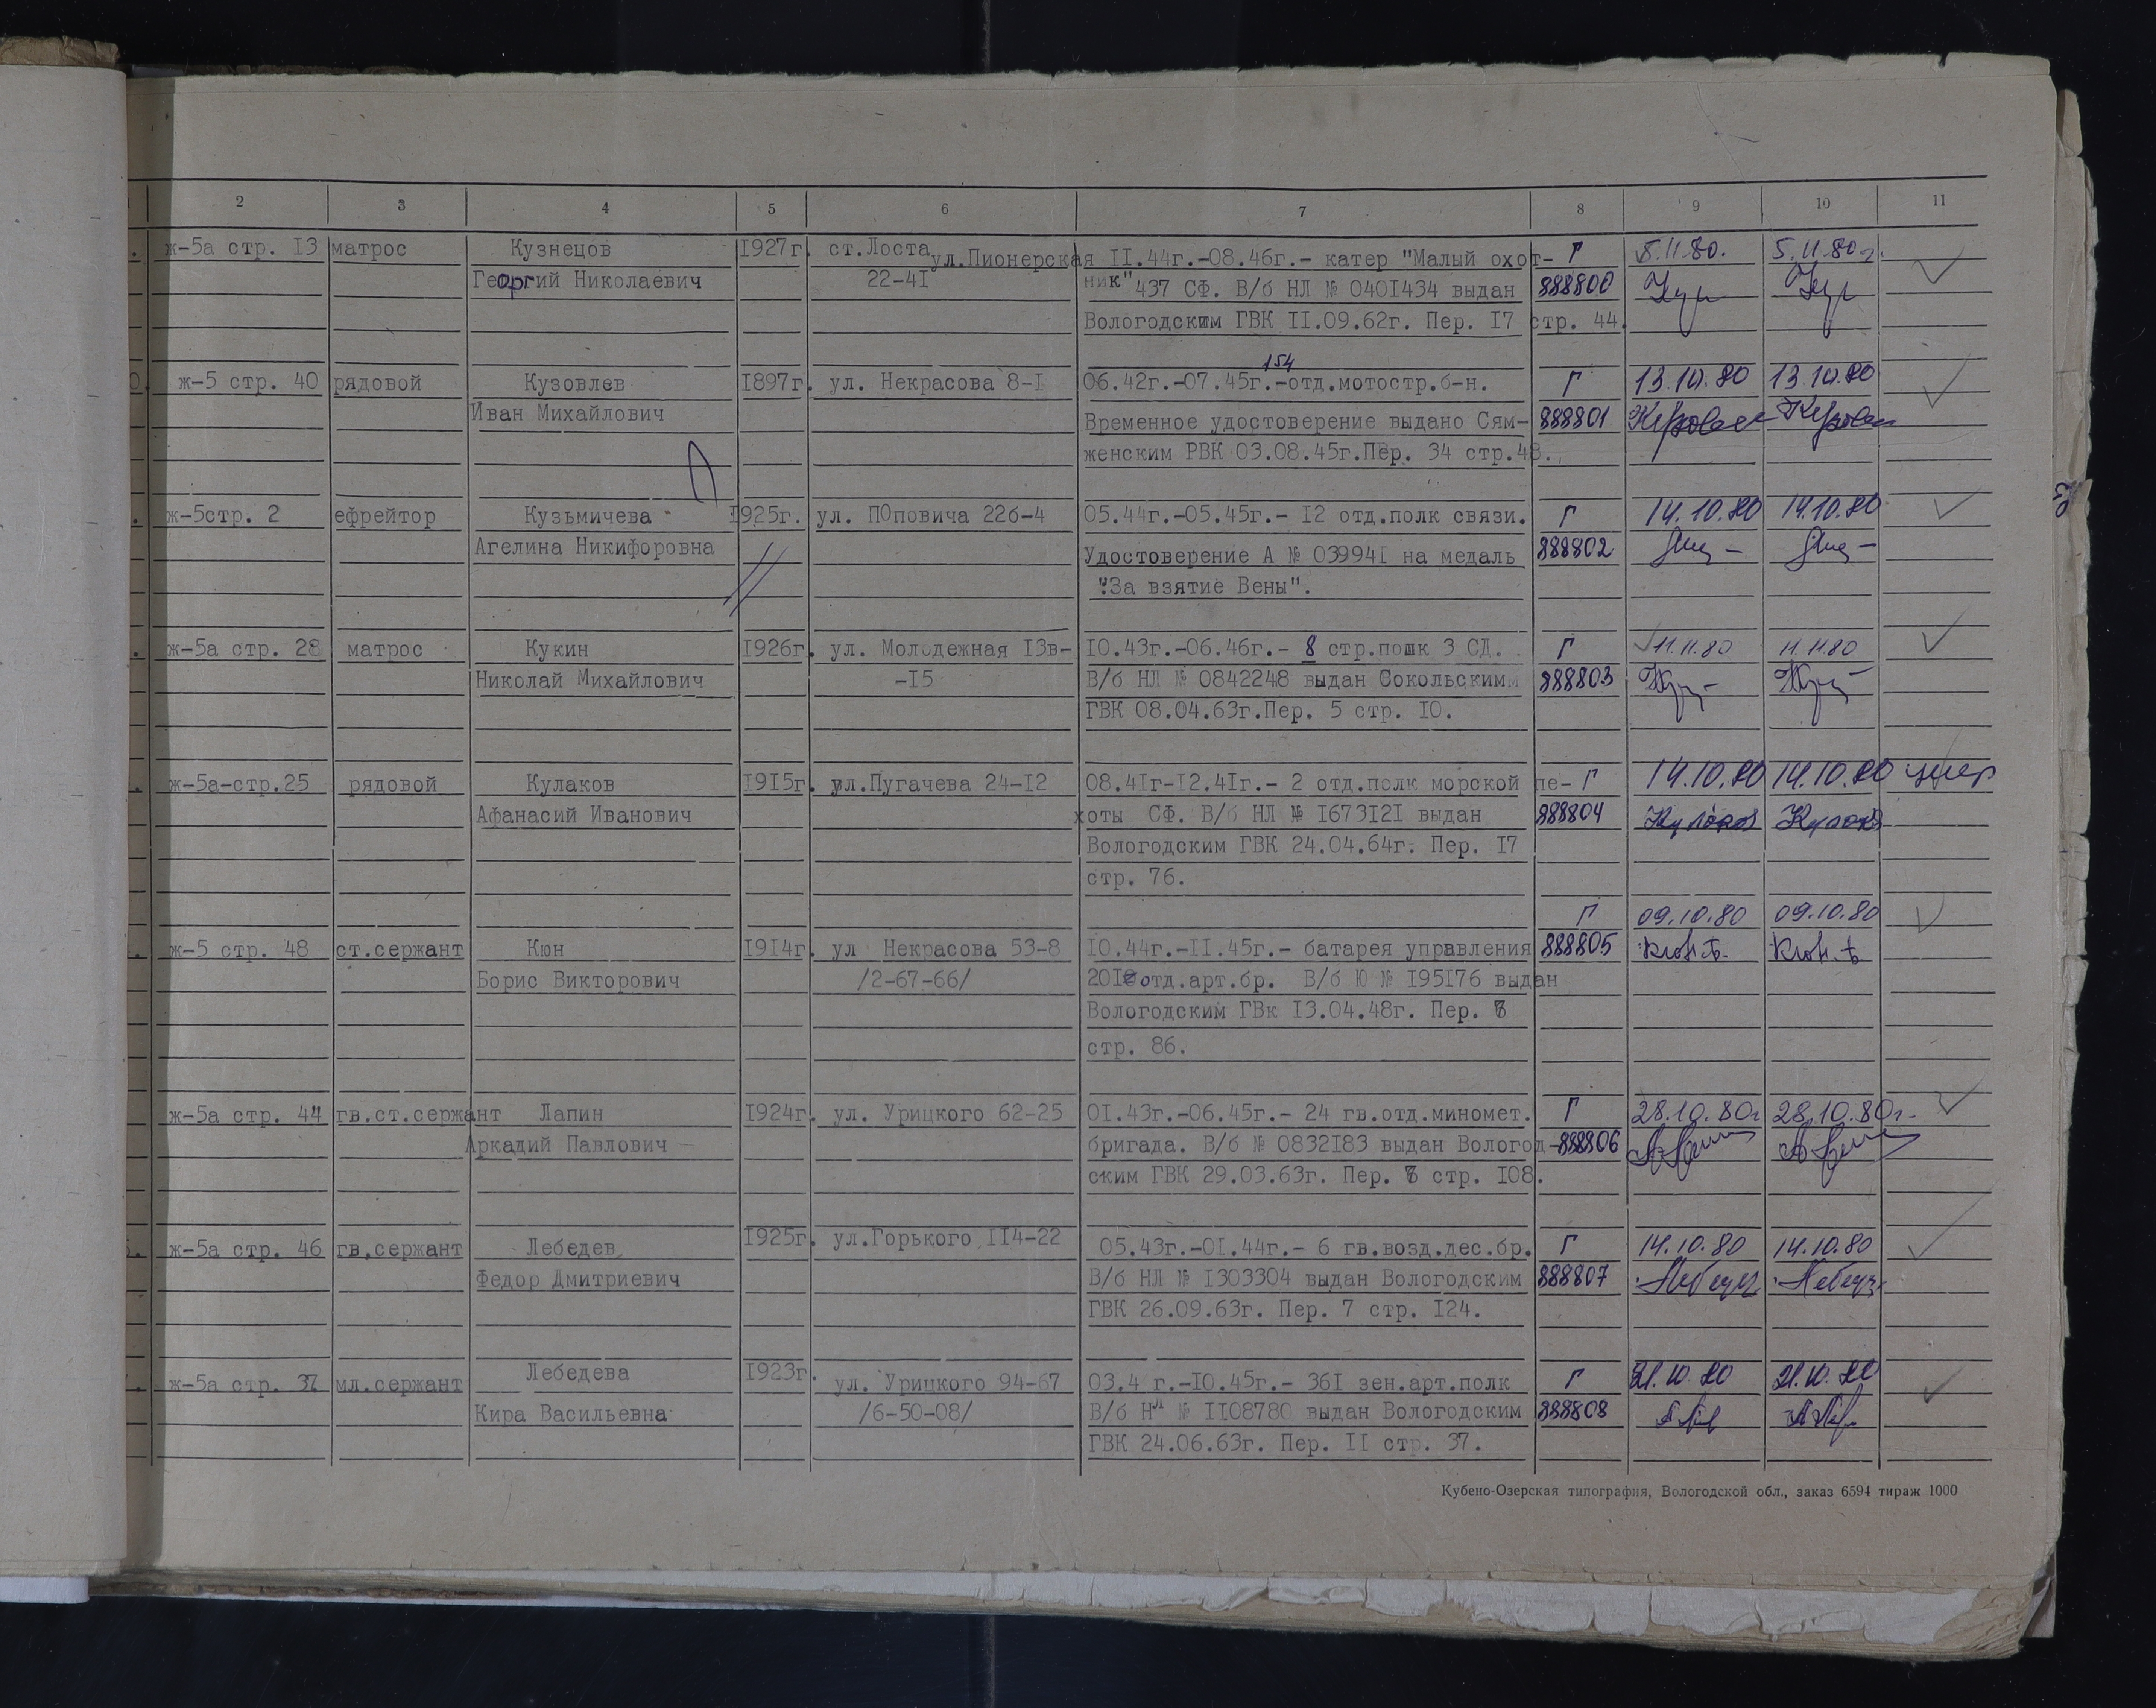 2 3 4 5 6 7 8 9 10 11
ж-5а стр. 13 матрос Кузнецов 1927г. ст.Лоста ул.Пионерская 11.44г.-08.46г.- катер "Малый охот- Г 5.11.80. 5.11.80г.
Георгий Николаевич 22-41 ник" 437 СФ. В/б НЛ № 0401434 выдан 888800
Вологодским ГВК 11.09.62г. Пер. 17 стр. 44.
154
ж-5 стр. 40 рядовой Кузовлев 1897г. ул. Некрасова 8-1 06.42г.-07.45г.-отд.мотостр.б-н. Г 13.10.80 13.10.80
Иван Михайлович Временное удостоверение выдано Сям- 888801
женским РВК 03.08.45г.Пер. 34 стр.48.
ж-5стр. 2 ефрейтор Кузьмичева 1925г. ул. ПОповича 22б-4 05.44г.-05.45г.- 12 отд.полк связи. Г 14.10.80 14.10.80
Агелина Никифоровна Удостоверение А № 039941 на медаль 888802
"За взятие Вены".
ж-5а стр. 28 матрос Кукин 1926г. ул. Молодежная 13в- 10.43г.-06.46г.- 8 стр.полк 3 СД. Г 11.11.80 11.11.80
Николай Михайлович -15 В/б НЛ № 0842248 выдан Сокольским 888803
ГВК 08.04.63г.Пер. 5 стр. 10.
ж-5а-стр.25 рядовой Кулаков 1915г. ул.Пугачева 24-12 08.41г-12.41г.- 2 отд.полк морской пе- Г 14.10.80 14.10.80 умер
Афанасий Иванович хоты СФ. В/б НЛ № 1673121 выдан 888804 Кулаков Кулаков
Вологодским ГВК 24.04.64г. Пер. 17
стр. 76.
Г 09.10.80 09.10.80
ж-5 стр. 48 ст.сержант Кюн 1914г. ул Некрасова 53-8 10.44г.-11.45г.- батарея управления 888805
Борис Викторович /2-67-66/ отд.арт.бр. В/б Ю № 195176 выдан
Вологодским ГВк 13.04.48г. Пер.
стр. 86.
ж-5а стр. 44 гв.ст.сержант Лапин 1924г. ул. Урицкого 62-25 01.43г.-06.45г.- 24 гв.отд.миномет. Г 28.10.80г 28.10.80г.
Аркадий Павлович бригада. В/б № 0832183 выдан Вологод- 888806
ским ГВК 29.03.63г. Пер. стр. 108.
ж-5а стр. 46 гв.сержант Лебедев 1925г. ул.Горького 114-22 05.43г.-01.44г.- 6 гв.возд.дес.бр. Г 14.10.80 14.10.80
Федор Дмитриевич В/б НЛ № 1303304 выдан Вологодским 888807
ГВК 26.09.63г. Пер. 7 стр. 124.
ж-5а стр. 37 мл.сержант Лебедева 1923г. ул. Урицкого 94-67 03.4 г.-10.45г.- 361 зен.арт.полк Г 21.10.80 21.10.80
Кира Васильевна /6-50-08/ В/б Нл № 1108780 выдан Вологодским 888808
ГВК 24.06.63г. Пер. 11 стр. 37.
Кубено-Озерская типография, Вологодской обл., заказ 6594 тираж 1000